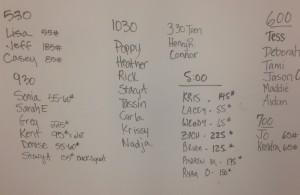 530
Lisa 55#
Jeff 185#
Casey 85#
930
Sonia 55-60#
Sarah E
Greg 225#
Kent
Denise 55-60#
Stacy A back squat
1030
Poppy
Heather
Rick
Stacy A
Tassin
Carla
Krissy
Nadja
3:30 Teen
Henry R
Connor
5:00
KRIS - 145#
LACEY - 55#
WENDY - 65#
ZACH - 225#
BRIAN - 125#
ANDREW M - 175#
RYAN D - 150#
600
Tess
Deborah
Tami
Jason C
Maddie
Aidan
700
Jo 60#
Kendra 60#